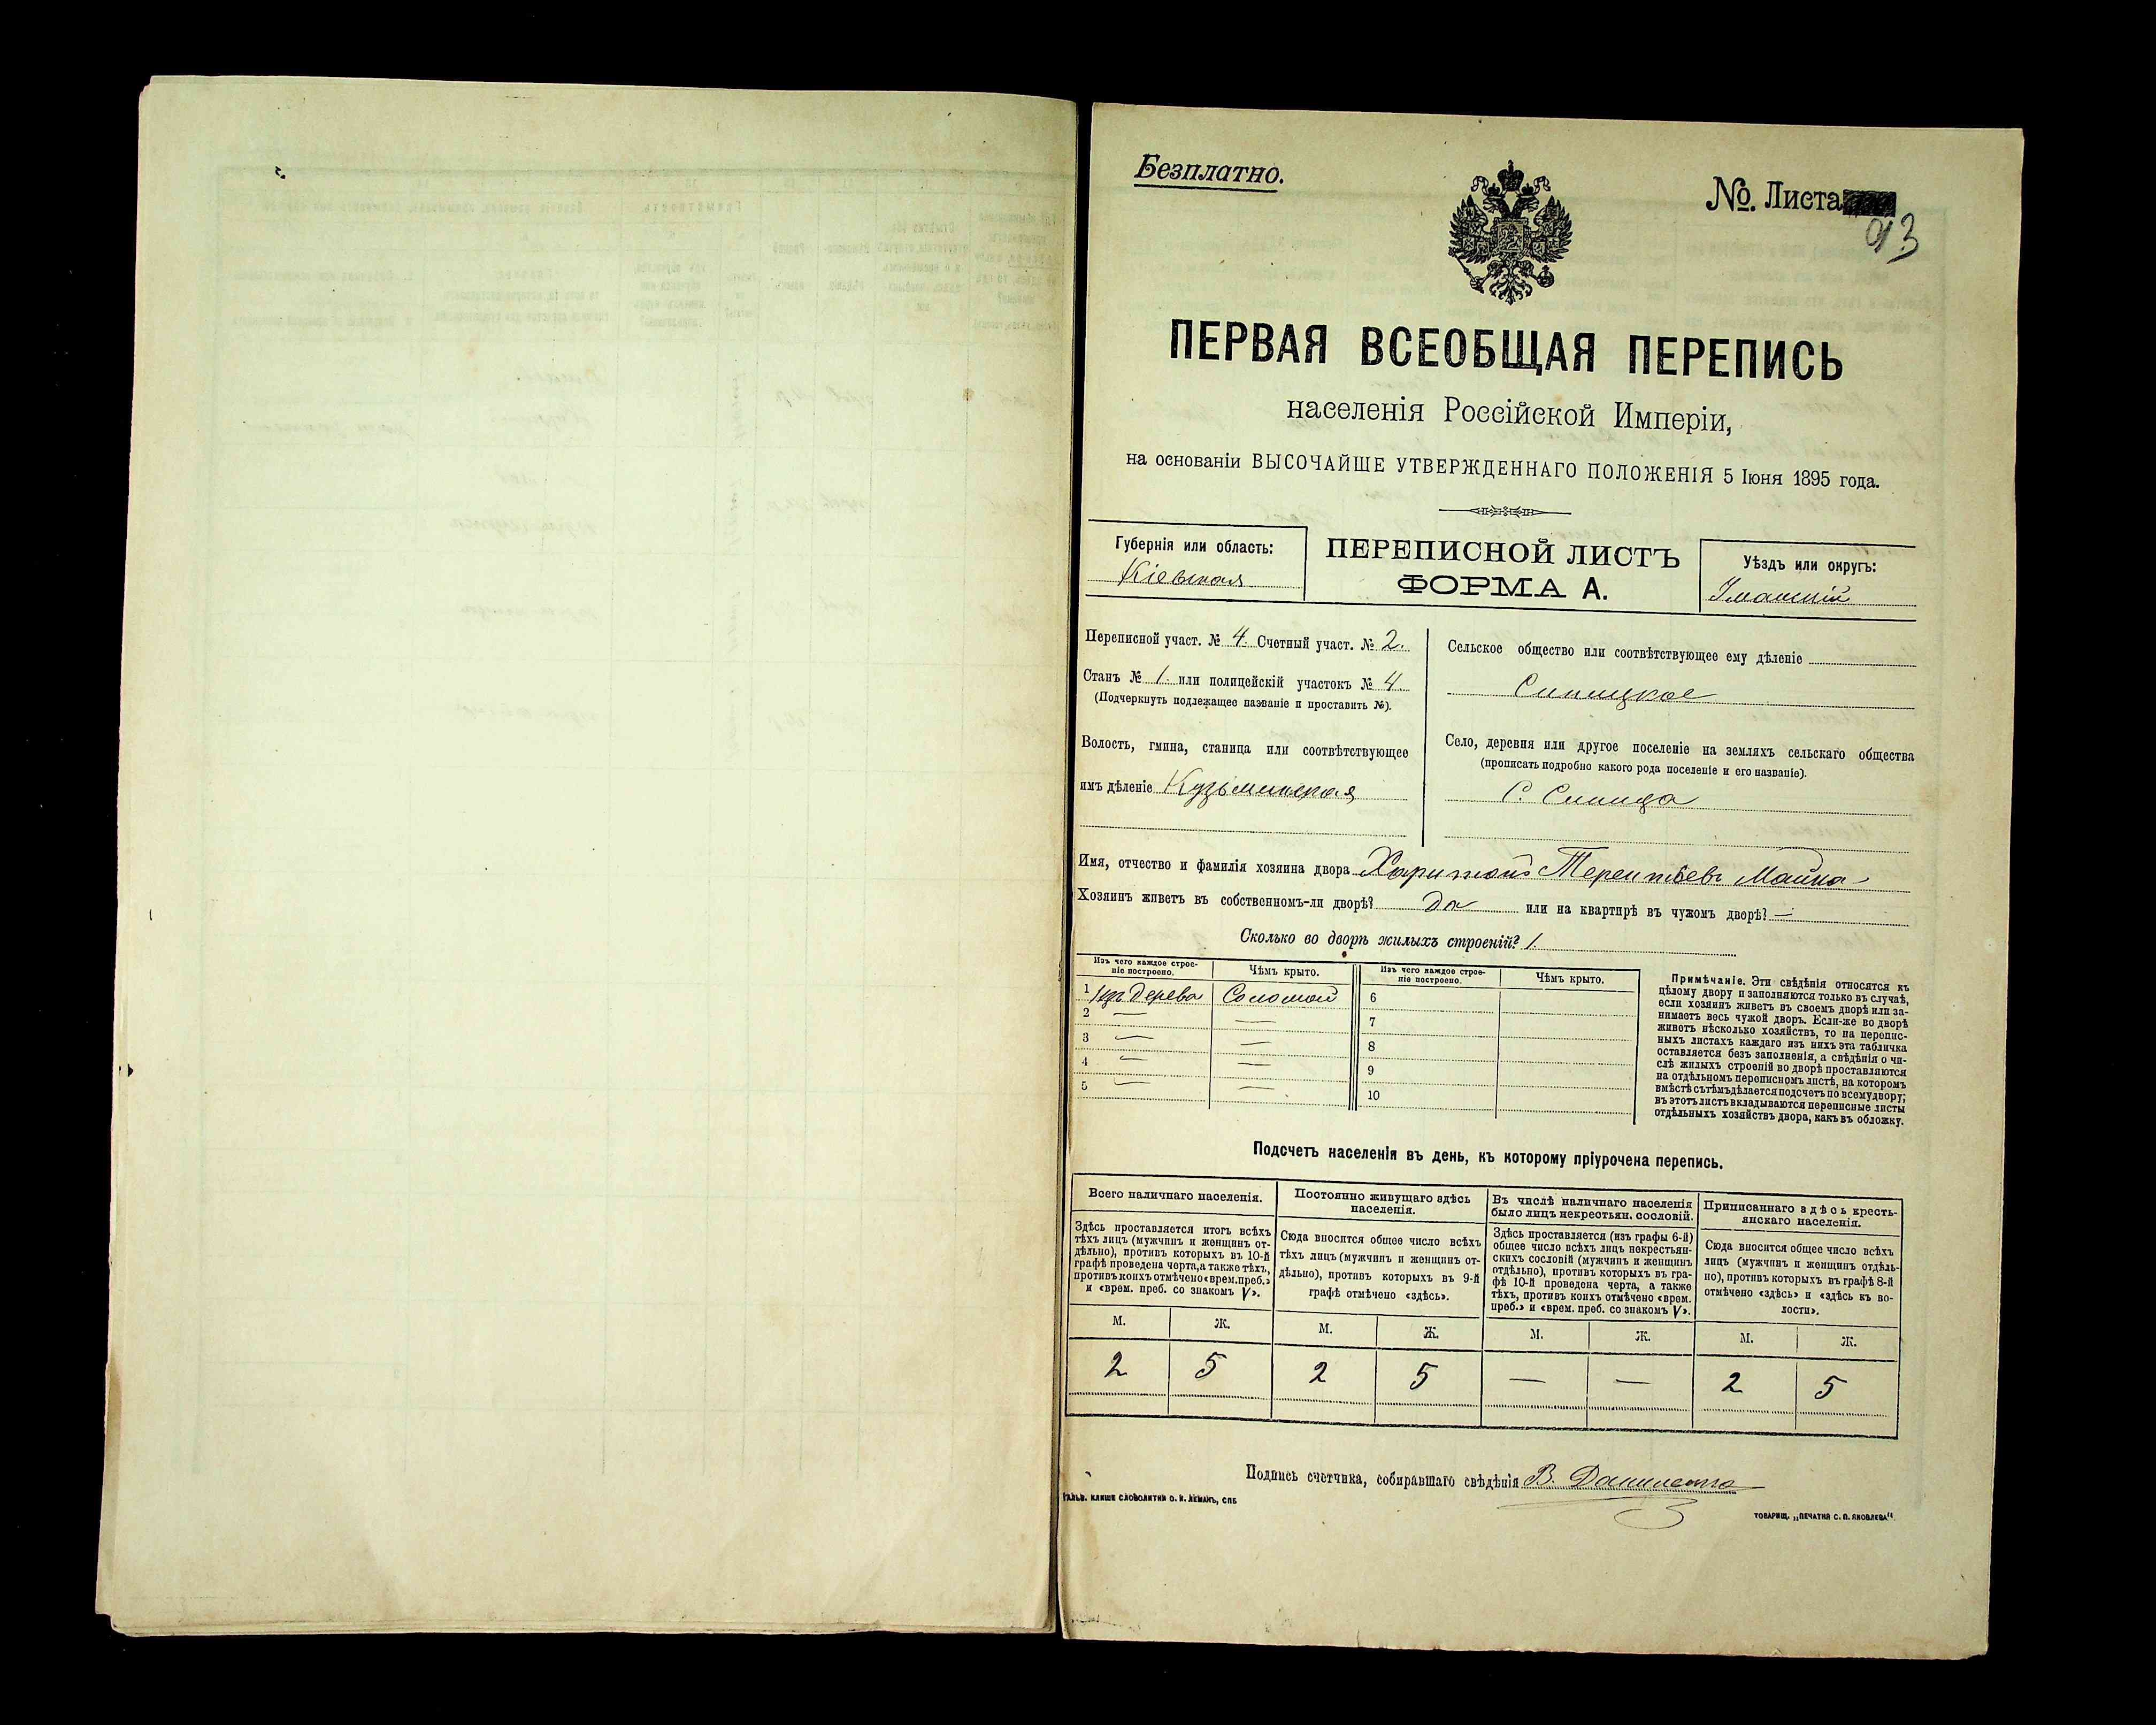 Безплатно.
№. Листа
93
ПЕРВАЯ ВСЕОБЩАЯ ПЕРЕПИСЬ
населенія Россійской Имперіи,
на основаніи ВЫСОЧАЙШЕ УТВЕРЖДЕННАГО ПОЛОЖЕНІЯ 5 Іюня 1895 года.
Губернія или область:
Кіевская
ПЕРЕПИСНОЙ ЛИСТЪ
ФОРМА А.
Уѣздъ или округъ:
Уманскій
Переписной участ. № 4. Счетный участ. № 2.
Станъ № 1. или полицейскій участокъ № 4
(Подчеркнуть подлежащее названіе и проставить №).
Волость, гмина, станица или соотвѣтствующее
имъ дѣленіе Кузьминская
Сельское общество или соотвѣтствующее ему дѣленіе
Синицкое
Село, деревня или другое поселеніе на земляхъ сельскаго общества
(прописать подробно какого рода поселеніе и его названіе).
С. Синица
Имя, отчество и фамилія хозяина двора Харитонъ Терентьевъ
Хозяинъ живетъ въ собственномъ-ли дворѣ? да или на квартирѣ въ чужомъ дворѣ? —
Сколько во дворѣ жилыхъ строеній? 1
Изъ чего каждое строе-
ніе построено.
Чѣмъ крыто.
Изъ чего каждое строе-
ніе построено.
Чѣмъ крыто.
1 изъ дерева Соломой 6
2 — — 7
3 — — 8
4 — — 9
5 — — 10
Примѣчаніе. Эти свѣдѣнія относятся къ
цѣлому двору и заполняются только въ случаѣ,
если хозяинъ живетъ въ своемъ дворѣ или за-
нимаетъ весь чужой дворъ. Если-же во дворѣ
живетъ нѣсколько хозяйствъ, то на перепис-
ныхъ листахъ каждаго изъ нихъ эта табличка
оставляется безъ заполненія, а свѣдѣнія о чи-
слѣ жилыхъ строеній во дворѣ проставляются
на отдѣльномъ переписномъ листѣ, на которомъ
вмѣстѣ съ тѣмъ дѣлается подсчетъ по всему двору;
въ этотъ листъ вкладываются переписные листы
отдѣльныхъ хозяйствъ двора, какъ въ обложку.
Подсчетъ населенія въ день, къ которому пріурочена перепись.
Всего наличнаго населенія.
Здѣсь проставляется итогъ всѣхъ
тѣхъ лицъ (мужчинъ и женщинъ от-
дѣльно), противъ которыхъ въ 10-й
графѣ проведена черта, а также тѣхъ,
противъ коихъ отмѣчено «врем. преб.»
и «врем. преб. со знакомъ V».
Постоянно живущаго здѣсь
населенія.
Сюда вносится общее число всѣхъ
тѣхъ лицъ (мужчинъ и женщинъ от-
дѣльно), противъ которыхъ въ 9-й
графѣ отмѣчено «здѣсь».
Въ числѣ наличнаго населенія
было лицъ некрестьян. сословій.
Здѣсь проставляется (изъ графы 6-й)
общее число всѣхъ лицъ некрестьян-
скихъ сословій (мужчинъ и женщинъ
отдѣльно), противъ которыхъ въ гра-
фѣ 10-й проведена черта, а также
тѣхъ, противъ коихъ отмѣчено «врем.
преб.» и «врем. преб. со знакомъ V».
Приписаннаго здѣсь кресть-
янскаго населенія.
Сюда вносится общее число всѣхъ
лицъ (мужчинъ и женщинъ отдѣль-
но), противъ которыхъ въ графѣ 8-й
отмѣчено «здѣсь» и «здѣсь къ во-
лости».
М. Ж. М. Ж. М. Ж. М. Ж.
2 5 2 5 — — 2 5
Подпись счетчика, собиравшаго свѣдѣнія В.
ГАЛЬВ. КЛИШЕ СЛОВОЛИТНИ О. И. ЛЕМАНЪ, СПБ
ТОВАРИЩ. „ПЕЧАТНЯ С. П. ЯКОВЛЕВА“